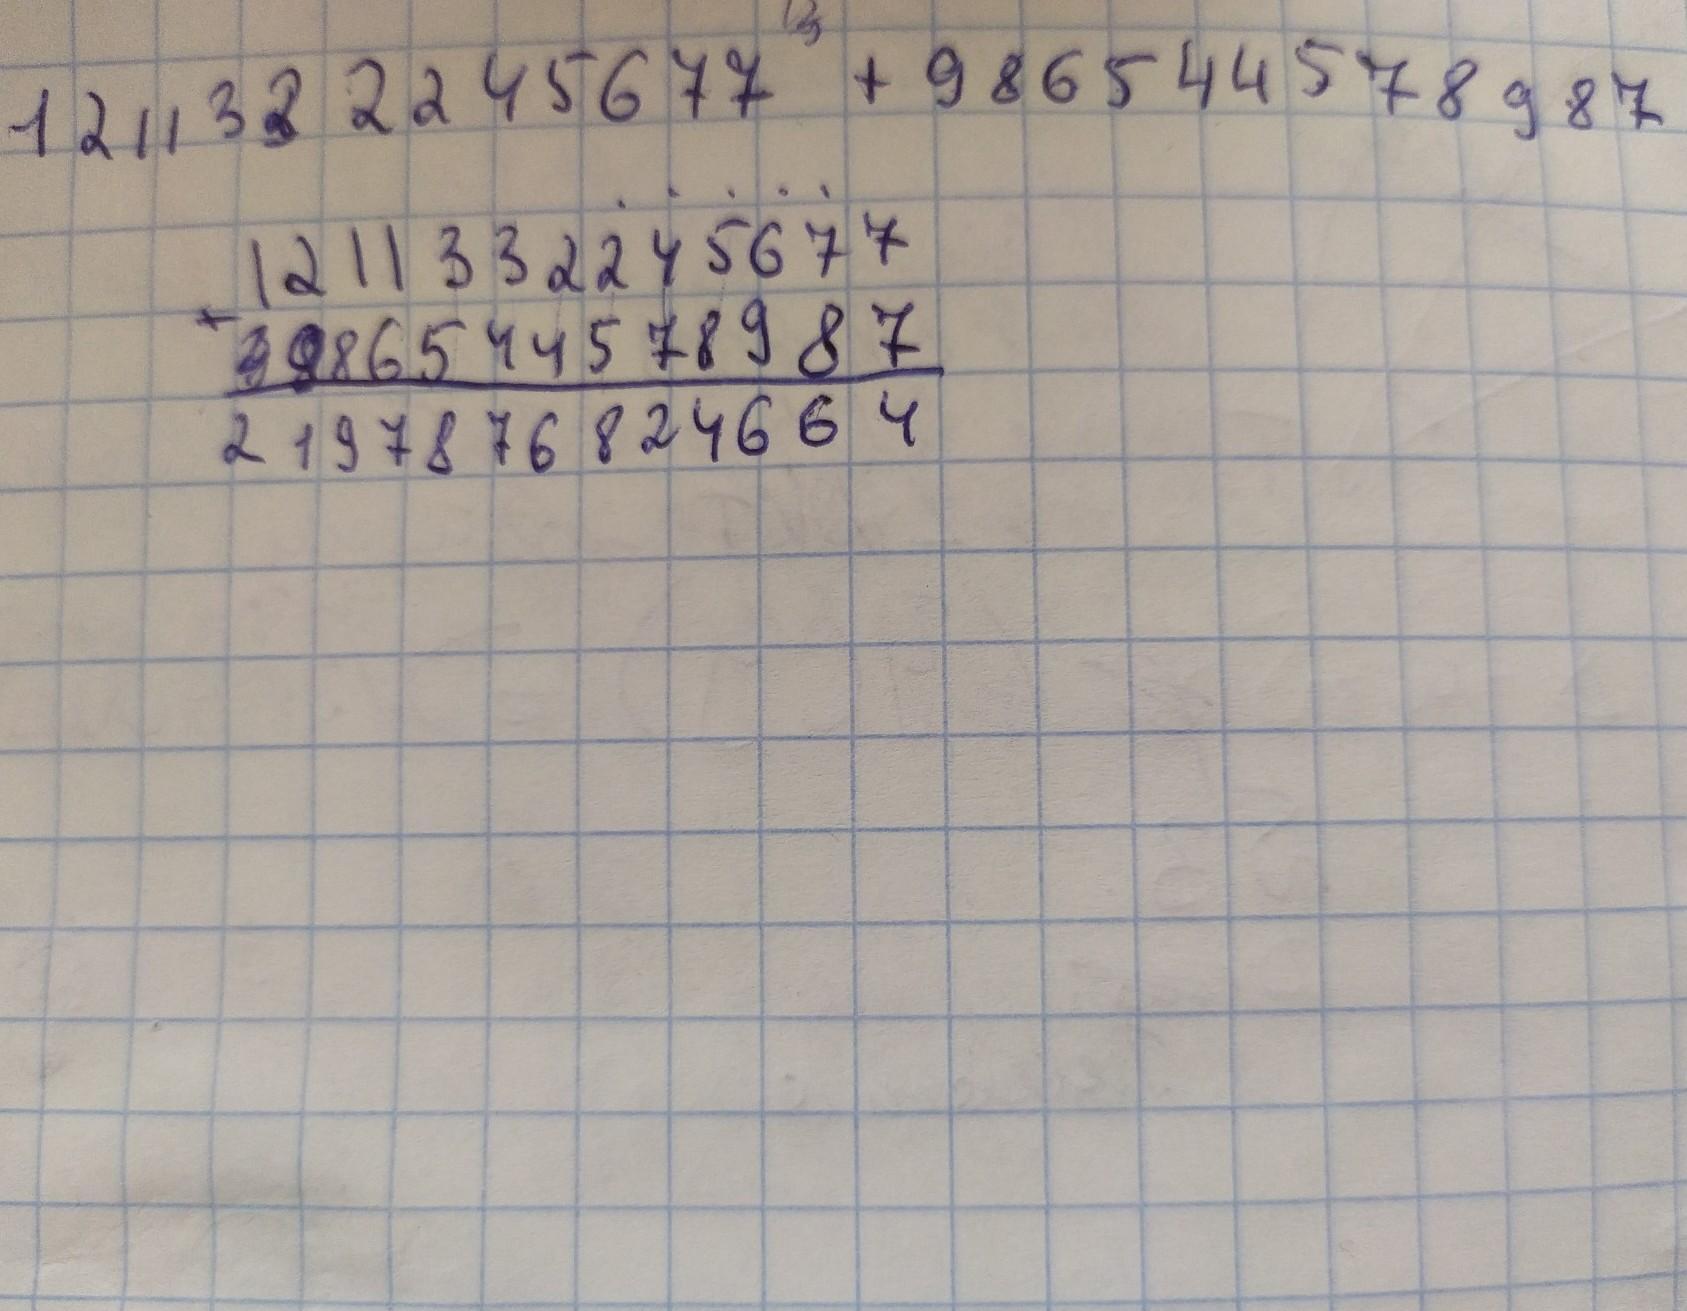 1211332245677 + 986544578987
1211332245677
+
986544578987
2197876824664